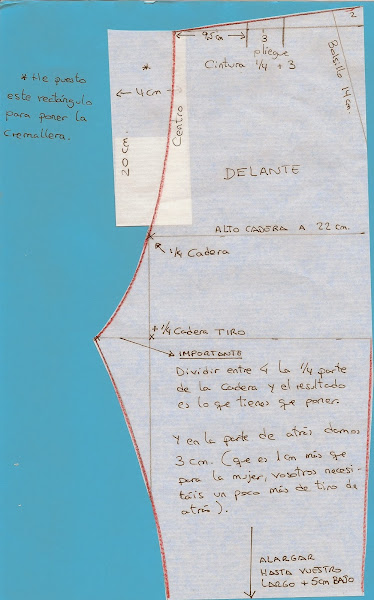 2
9,5 cm
3
pliegue
Cintura 1/4 + 3
Bolsillo 14 cm.
* He puesto
este rectángulo
para poner la
cremallera.
*
4 cm
20 cm.
Centro
DELANTE
ALTO CADERA A 22 cm.
1/4 Cadera
+ 1/4 Cadera TIRO
IMPORTANTE
Dividir entre 4 la 1/4 parte
de la cadera y el resultado
es lo que tienes que poner.
Y en la parte de atrás damos
3 cm. (que es 1 cm más que
para la mujer, vosotros necesi-
táis un poco más de tiro de
atrás).
ALARGAR
HASTA VUESTRO
LARGO + 5 cm BAJO